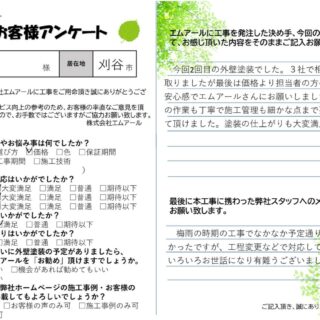 お客様アンケート
様 居在地 刈谷市
社エムアールにご用命頂き誠にありがとうござ
ビス向上の参考のため、お客様の率直なご意見を頂
ので、お手数ではございますがご協力お願い致します。
株式会社エムアール
やお悩み事は何でしたか？
選び方 価格 □色 □保証期間
工事期間 □施工技術 ）
応はいかがでしたか？
大変満足 □満足 □普通 □期待以下
大変満足 □満足 □普通 □期待以下
はいかがでしたか？
大変満足 □満足 □普通 □期待以下
りはいかがでしたか？
大変満足 □満足 □普通 □期待以下
いに外壁塗装の予定がありましたら、
アールを「お勧め」頂けますでしょうか。
い □機会があれば勧めてもいい
い
弊社ホームページの施工事例・お客様の
載してもよろしいでしょうか？
□お客様の声のみ可 □施工事例のみ可
エムアールに工事を発注した決め手、今回の工
て、お感じ頂いた内容をそのままご記入お願
今回2回目の外壁塗装でした。３社で相
取りましたが最後は価格より担当者の方の
安心感でエムアールさんにお願いしました
の作業も丁寧で施工管理も細かな点まで
て頂けました。塗装の仕上がりも大変満
最後に本工事に携わった弊社スタッフへのメ
お願い致します。
梅雨の時期の工事でなかなか予定通り
かったですが、工程変更などで対応して
いろいろお世話になり有難うございまし
ご記入頂き、誠にあり